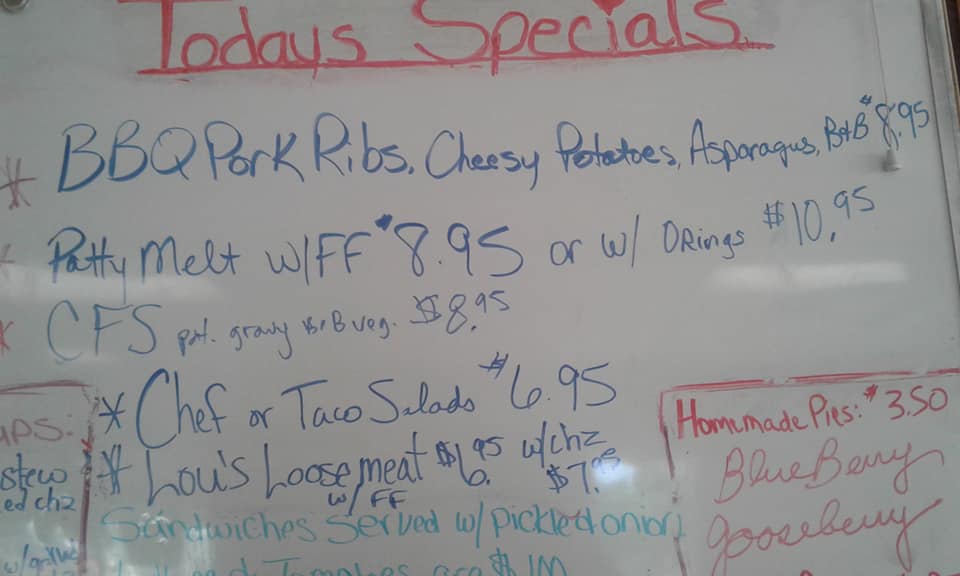 Todays Specials
* BBQ Pork Ribs, Cheesy Potatoes, Asparagus, B+B $8.95
* Patty Melt w/FF $8.95 or w/ ORings $10.95
* CFS pot. gravy B+B veg. $8.95
* Chef or Taco Salads $6.95
* Lou's Loosemeat $6.95 w/chz $7.95
w/ FF
Sandwiches Served w/pickled onion
are $1.00
stew
ed chz
Homemade Pies: $3.50
BlueBerry
gooseberry